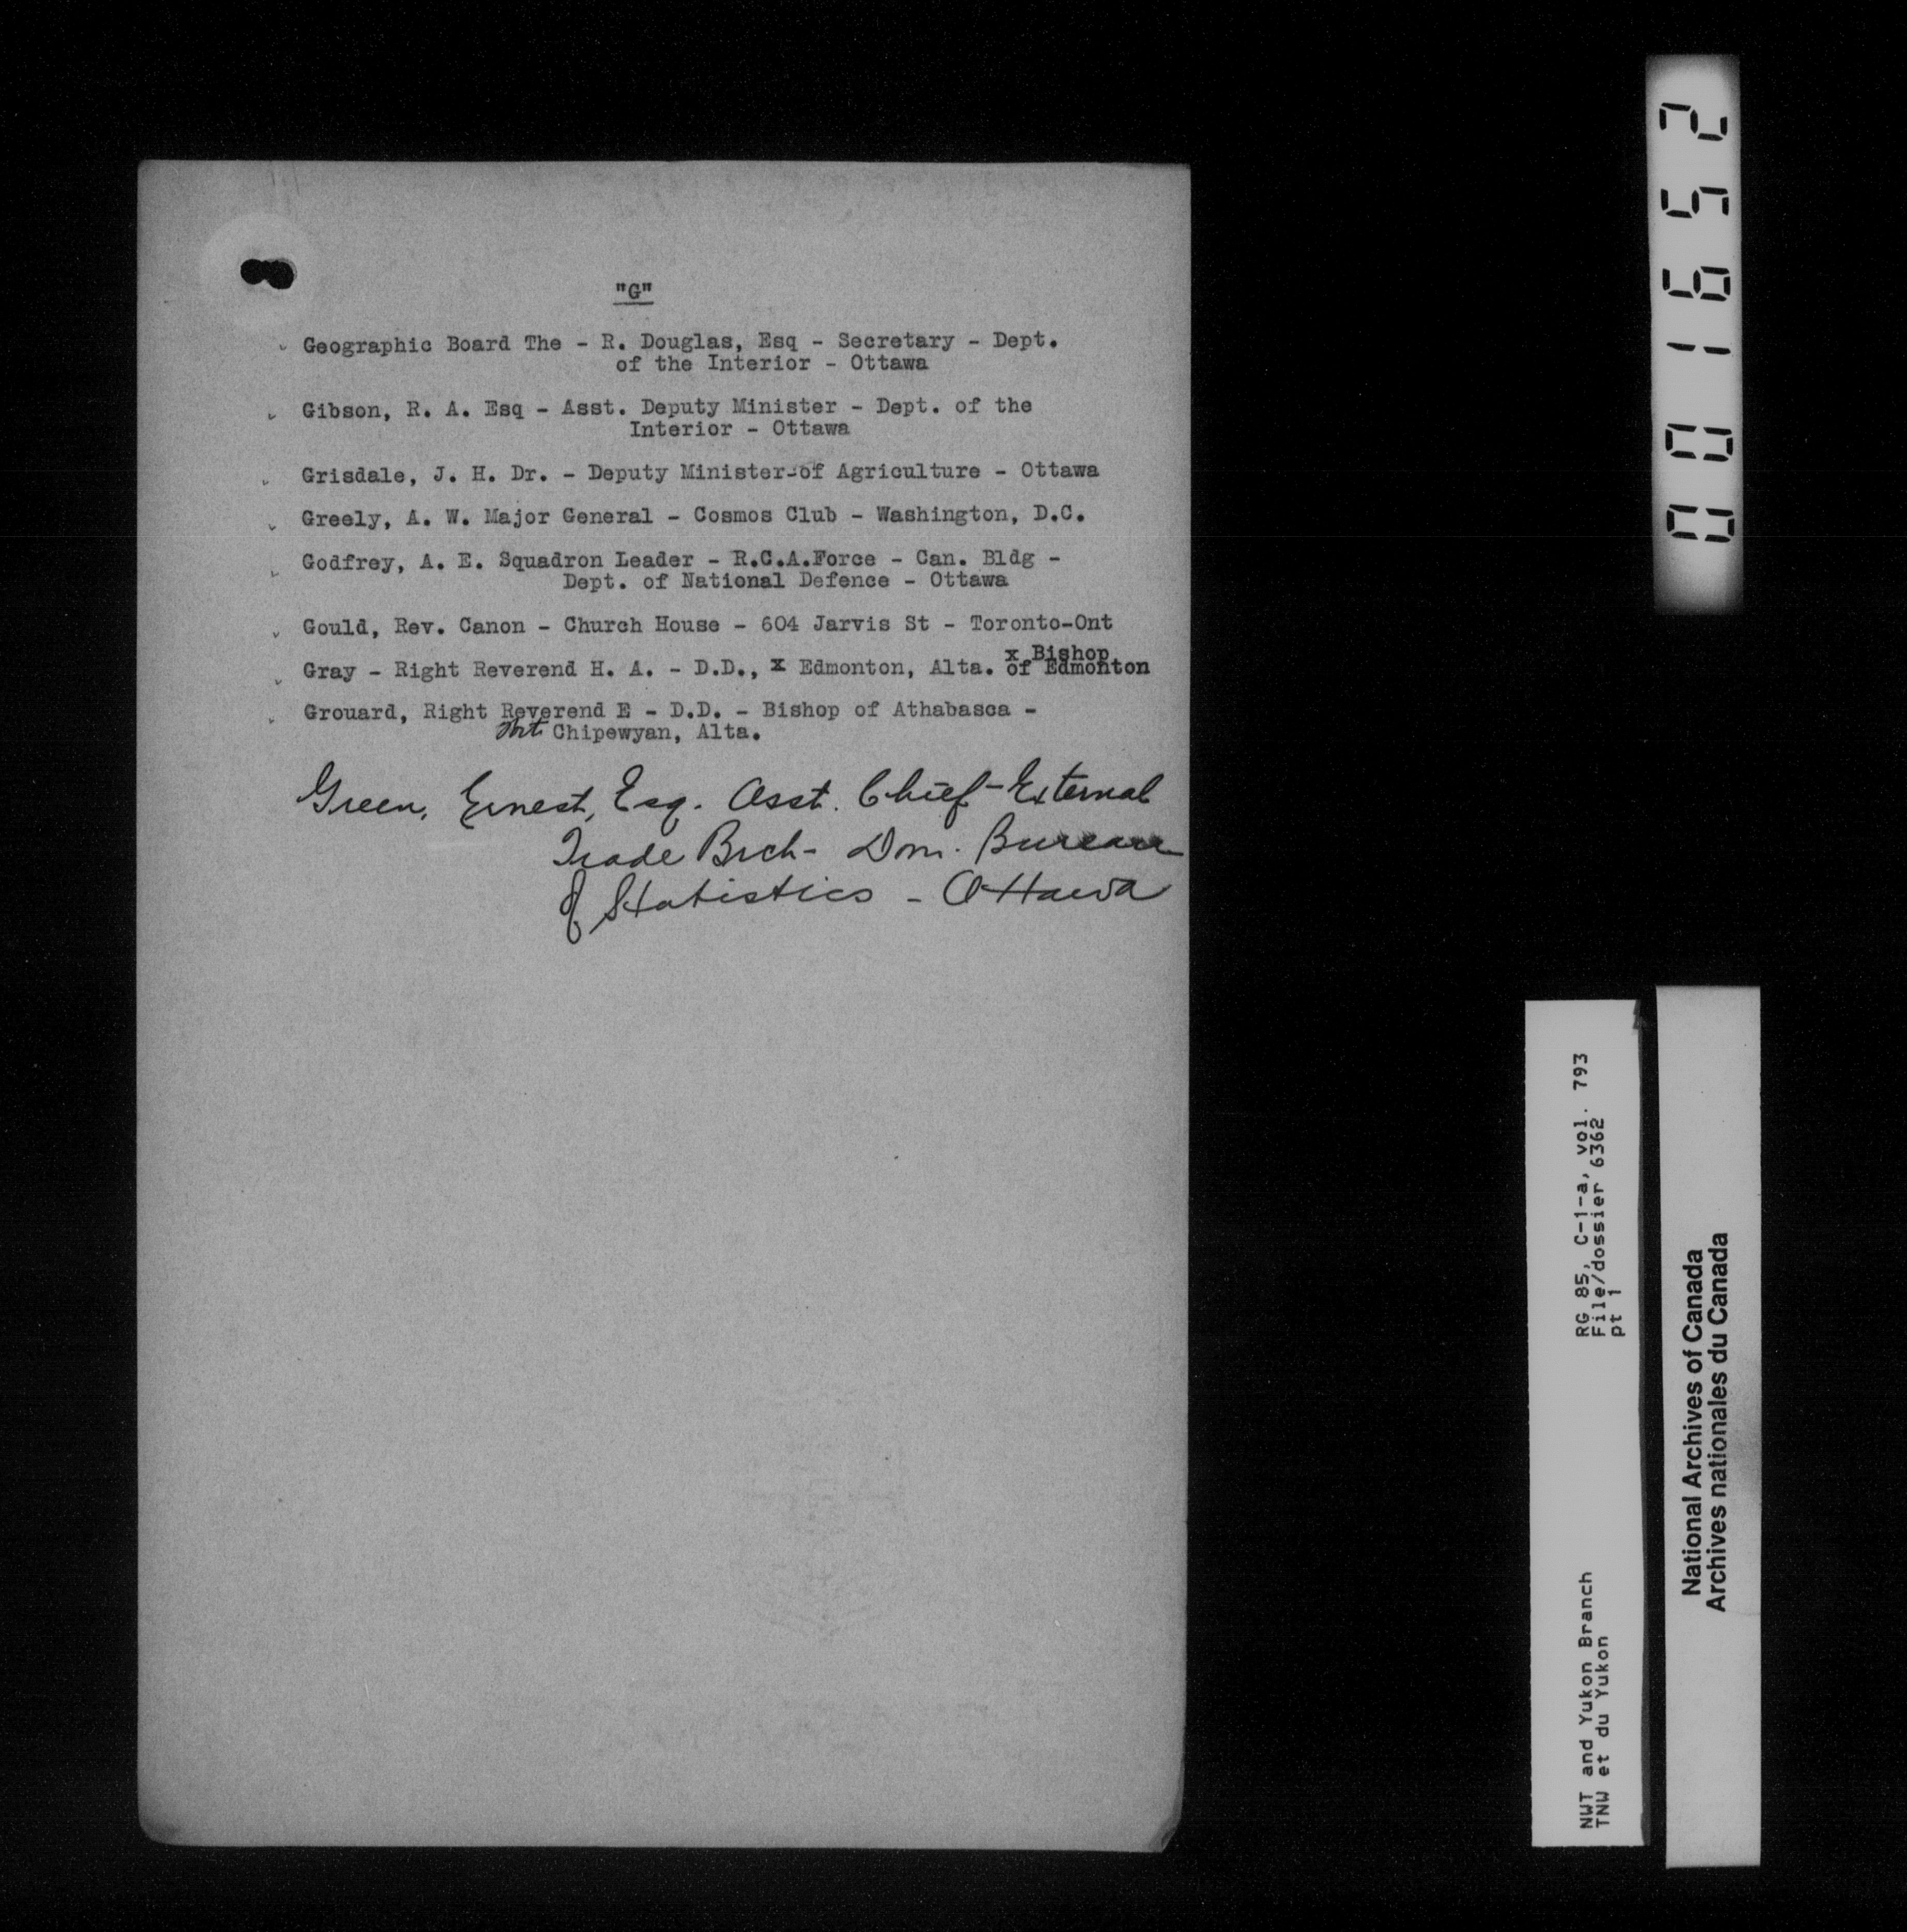 "G"
Geographic Board The - R. Douglas, Esq - Secretary - Dept.
of the Interior - Ottawa
Gibson, R. A. Esq - Asst. Deputy Minister - Dept. of the
Interior - Ottawa
Grisdale, J. H. Dr. - Deputy Minister-of Agriculture - Ottawa
Greely, A. W. Major General - Cosmos Club - Washington, D.C.
Godfrey, A. E. Squadron Leader - R.C.A.Force - Can. Bldg -
Dept. of National Defence - Ottawa
Gould, Rev. Canon - Church House - 604 Jarvis St - Toronto-Ont
x Bishop
Gray - Right Reverend H. A. - D.D., x Edmonton, Alta. of Edmonton
Grouard, Right Reverend E - D.D. - Bishop of Athabasca -
Chipewyan, Alta.
Green, Ernest, Esq. Asst. Chief - External
Trade Brch - Dom. Bureau
of Statistics - Ottawa
001652
RG 85, C-1-a, vol. 793
File/dossier 6362
pt 1
NWT and Yukon Branch
TNW et du Yukon
National Archives of Canada
Archives nationales du Canada